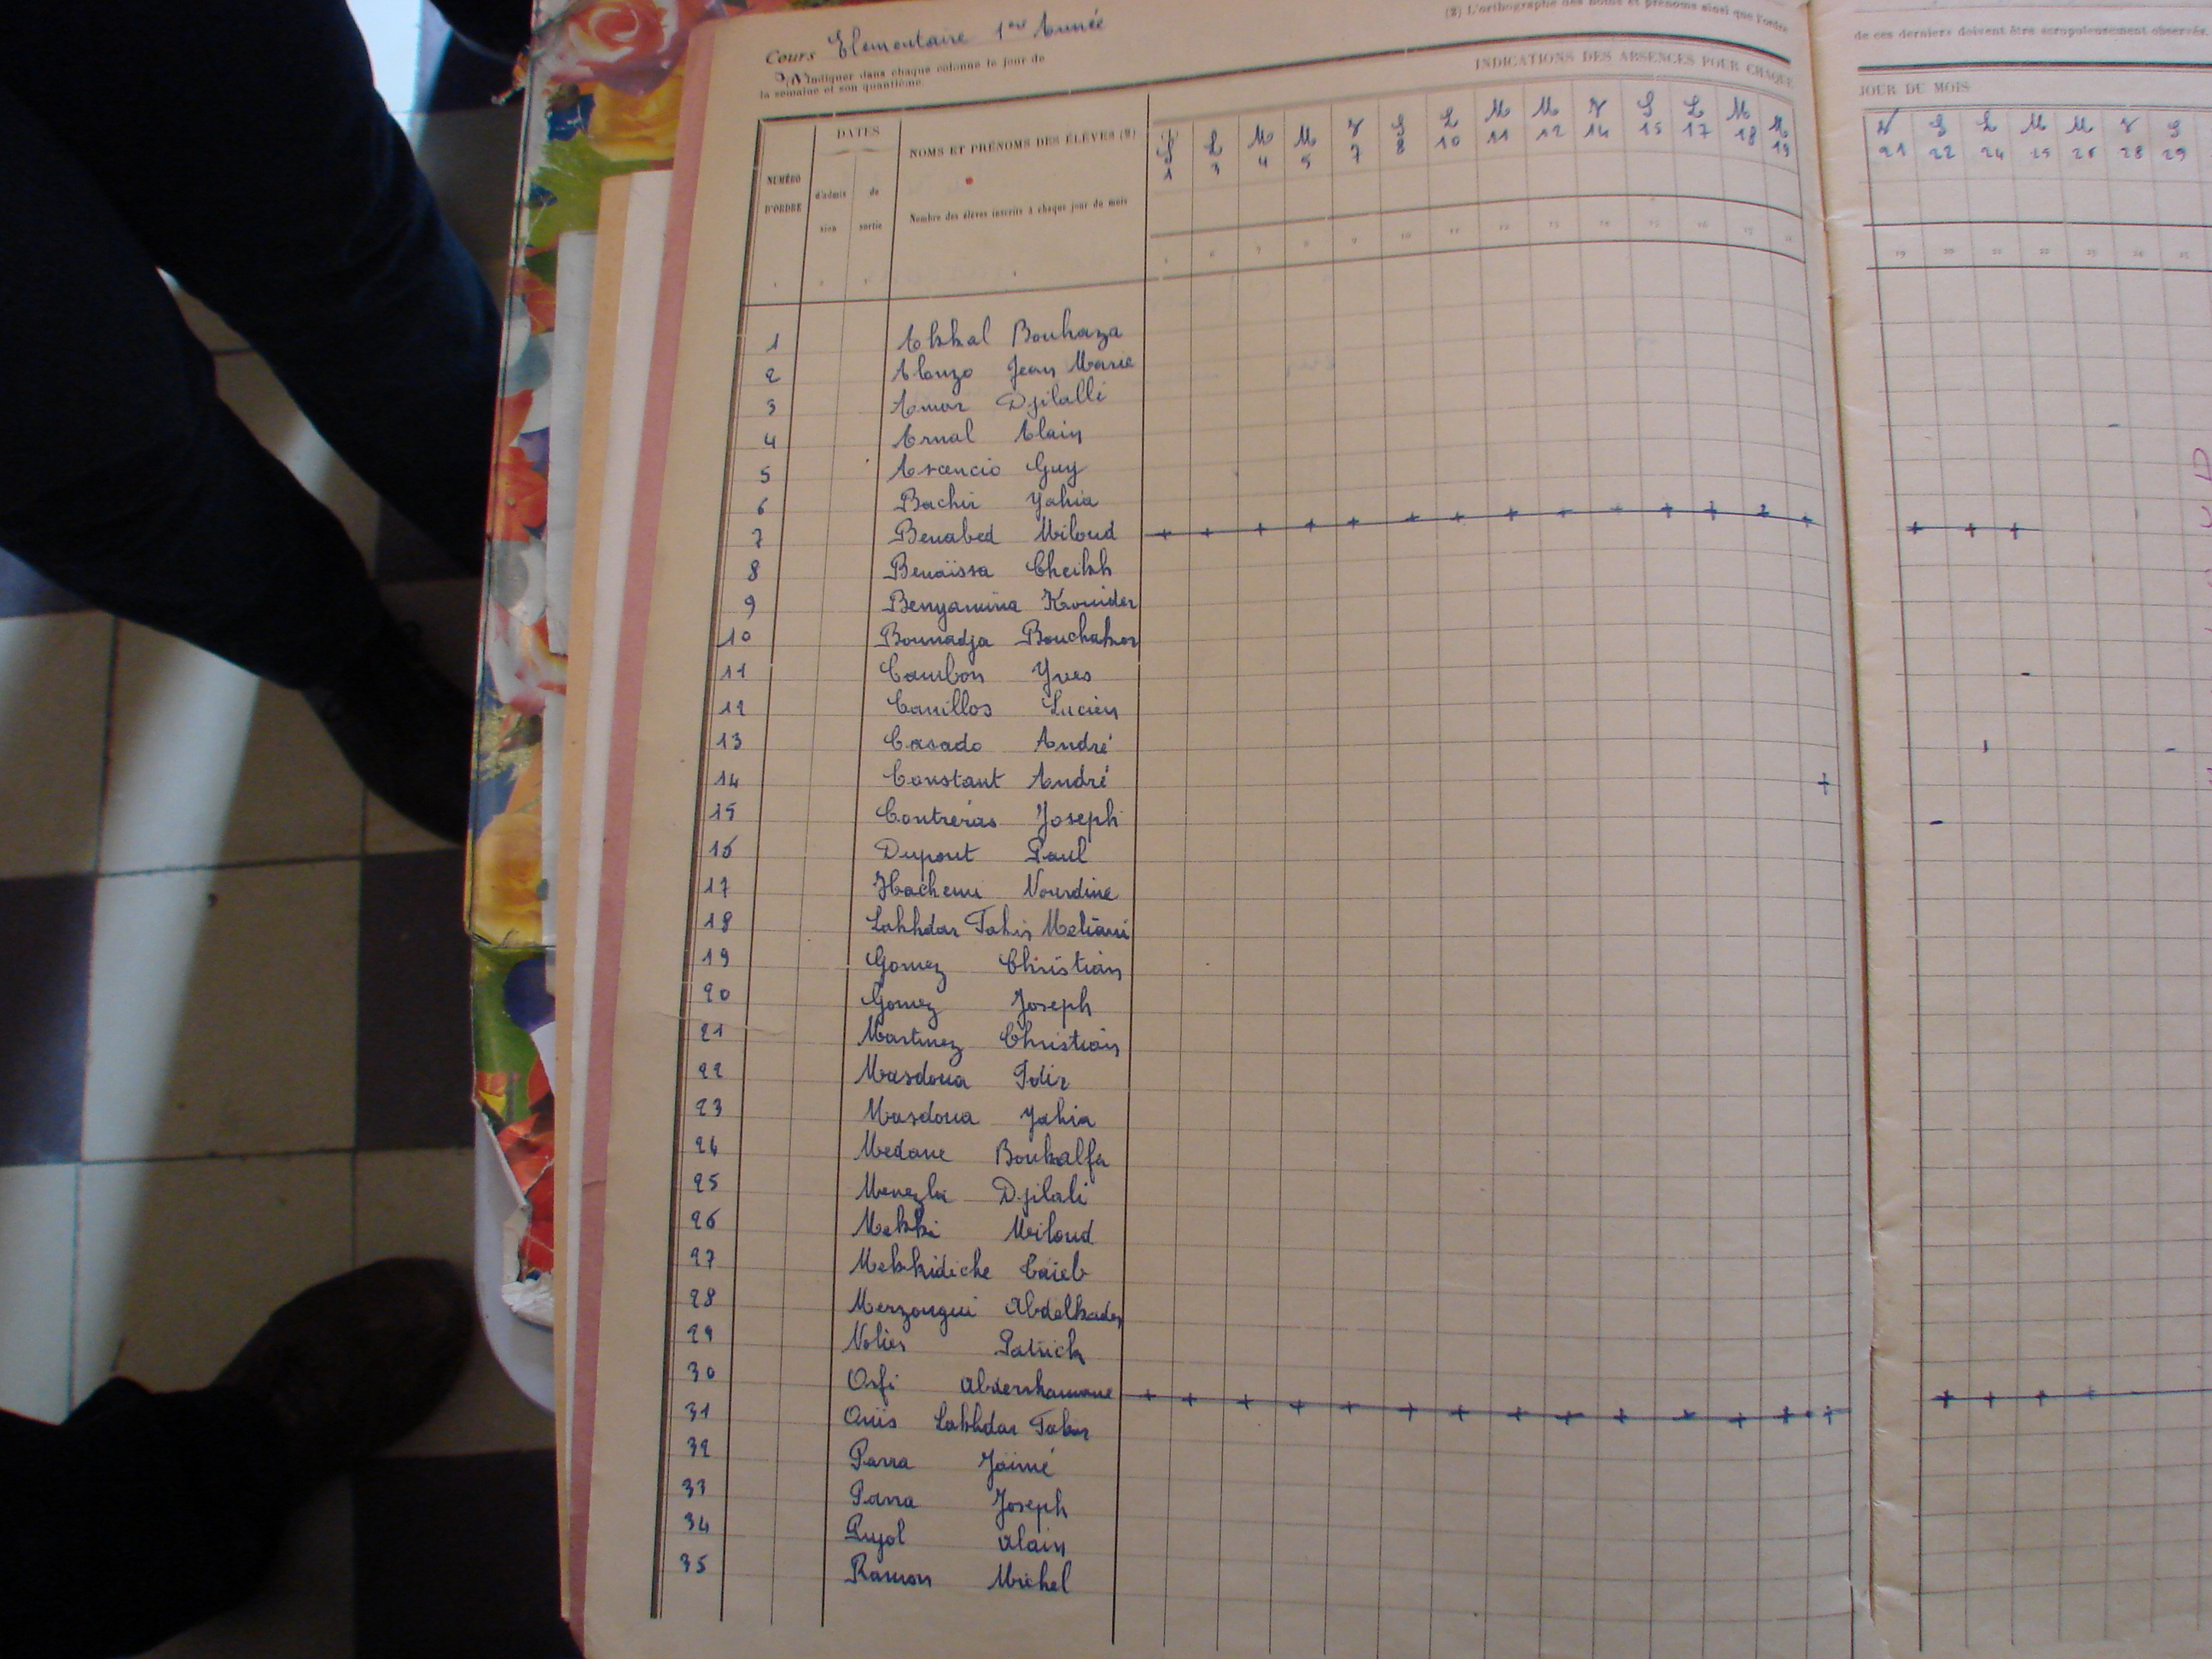 (2) L'orthographe des noms et prénoms ainsi que l'ordre
de ces derniers doivent être scrupuleusement observés.
Cours Elementaire 1ère Année
(1) Indiquer dans chaque colonne le jour de
la semaine et son quantième.
INDICATIONS DES ABSENCES POUR CHAQUE
JOUR DU MOIS
NUMÉRO D'ORDRE
DATES
d'admission
de sortie
NOMS ET PRÉNOMS DES ÉLÈVES (2)
Nombre des élèves inscrits à chaque jour du mois
S L M M V S L M M V S L M M V S L M M V S
1 3 4 5 7 8 10 11 12 14 15 17 18 19 21 22 24 25 26 28 29
1 Akkal Bouhaza
2 Alonzo Jean Marie
3 Amor Djilalli
4 Arnal Alain
5 Ascencio Guy
6 Bachir Yahia
7 Benabed Miloud
8 Benaïssa Cheikh
9 Benyamina Kouider
10 Bounadja Bouchakor
11 Cambon Yves
12 Canillos Lucien
13 Casado André
14 Constant André
15 Contréras Joseph
16 Dupont Paul
17 Hachemi Nourdine
18 Lakhdar Tahir Meliani
19 Gomez Christian
20 Gomez Joseph
21 Martinez Christian
22 Masdoua Idir
23 Masdoua Yahia
24 Medane Boukalfa
25 Menezla Djilali
26 Mekki Miloud
27 Mekkidiche Taieb
28 Merzougui Abdelkader
29 Nolier Patrick
30 Orfi Abderrhamane
31 Ouis Lakhdar Tahir
32 Parra Jaïmé
33 Parra Joseph
34 Pujol Alain
35 Ramon Michel